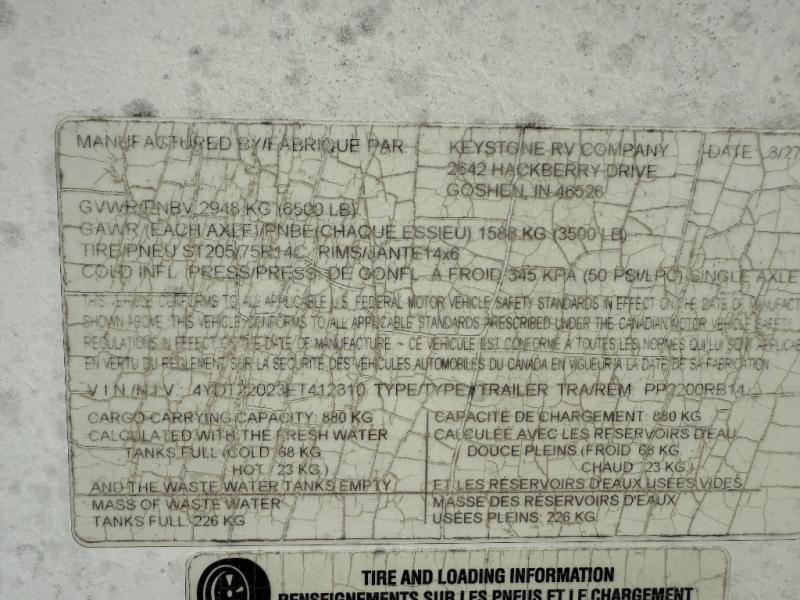 MANUFACTURED BY/FABRIQUE PAR KEYSTONE RV COMPANY DATE 3/27
2642 HACKBERRY DRIVE
GOSHEN, IN 46526
GVWR/PNBV 2948 KG (6500 LB)
GAWR (EACH AXLE)/PNBE (CHAQUE ESSIEU) 1588 KG (3500 LB)
TIRE/PNEU ST205/75R14C RIMS/JANTE 14x6
COLD INFL. PRESS/PRESS. DE GONFL. A FROID 345 KPA (50 PSI/LPC) SINGLE AXLE
THIS VEHICLE CONFORMS TO ALL APPLICABLE U.S. FEDERAL MOTOR VEHICLE SAFETY STANDARDS IN EFFECT ON THE DATE OF MANUFACT
SHOWN ABOVE. THIS VEHICLE CONFORMS TO ALL APPLICABLE STANDARDS PRESCRIBED UNDER THE CANADIAN MOTOR VEHICLE SAFETY
REGULATIONS IN EFFECT ON THE DATE OF MANUFACTURE ~ CE VÉHICULE EST CONFORME À TOUTES LES NORMES QUI LUI SONT
EN VERTU DU RÈGLEMENT SUR LA SÉCURITÉ DES VÉHICULES AUTOMOBILES DU CANADA EN VIGUEUR À LA DATE DE SA FABRICATION
V I N / N I V 4YDT22023ET412310 TYPE/TYPE TRAILER TRA/REM PP2200RB14
CARGO CARRYING CAPACITY: 880 KG
CALCULATED WITH THE FRESH WATER
TANKS FULL (COLD 68 KG
HOT 23 KG)
AND THE WASTE WATER TANKS EMPTY
CAPACITÉ DE CHARGEMENT: 880 KG
CALCULÉE AVEC LES RÉSERVOIRS D'EAU
DOUCE PLEINS (FROID 68 KG
CHAUD 23 KG)
ET LES RÉSERVOIRS D'EAUX USÉES VIDES
MASS OF WASTE WATER
TANKS FULL: 226 KG
MASSE DES RÉSERVOIRS D'EAUX
USÉES PLEINS: 226 KG
TIRE AND LOADING INFORMATION
RENSEIGNEMENTS SUR LES PNEUS ET LE CHARGEMENT